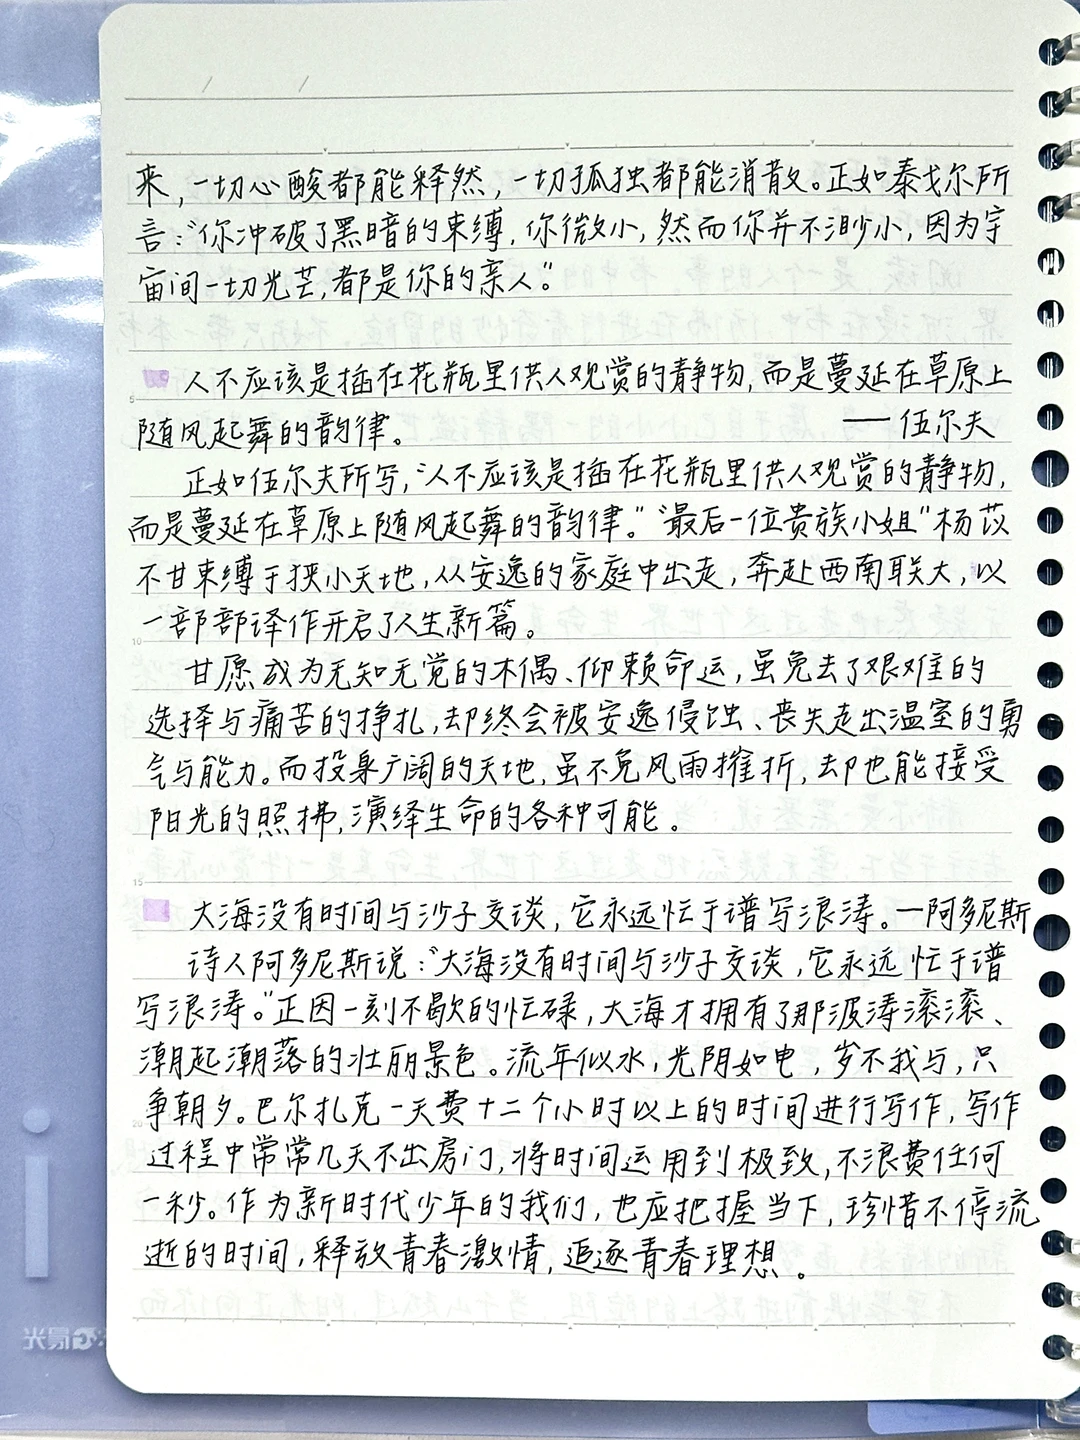 来，一切心酸都能释然，一切孤独都能消散。正如泰戈尔所
言："你冲破了黑暗的束缚，你微小，然而你并不渺小，因为宇
宙间一切光芒，都是你的亲人。"
人不应该是插在花瓶里供人观赏的静物，而是蔓延在草原上
随风起舞的韵律。 ——伍尔夫
正如伍尔夫所写，"人不应该是插在花瓶里供人观赏的静物，
而是蔓延在草原上随风起舞的韵律。""最后一位贵族小姐"杨苡
不甘束缚于狭小天地，从安逸的家庭中出走，奔赴西南联大，以
一部部译作开启了人生新篇。
甘愿成为无知无觉的木偶、仰赖命运，虽免去了艰难的
选择与痛苦的挣扎，却终会被安逸侵蚀、丧失走出温室的勇
气与能力。而投身广阔的天地，虽不免风雨摧折，却也能接受
阳光的照拂，演绎生命的各种可能。
大海没有时间与沙子交谈，它永远忙于谱写浪涛。—阿多尼斯
诗人阿多尼斯说："大海没有时间与沙子交谈，它永远忙于谱
写浪涛。"正因一刻不歇的忙碌，大海才拥有了那波涛滚滚、
潮起潮落的壮丽景色。流年似水，光阴如电，岁不我与，只
争朝夕。巴尔扎克一天费十二个小时以上的时间进行写作，写作
过程中常常几天不出房门，将时间运用到极致，不浪费任何
一秒。作为新时代少年的我们，也应把握当下，珍惜不停流
逝的时间，释放青春激情，追逐青春理想。